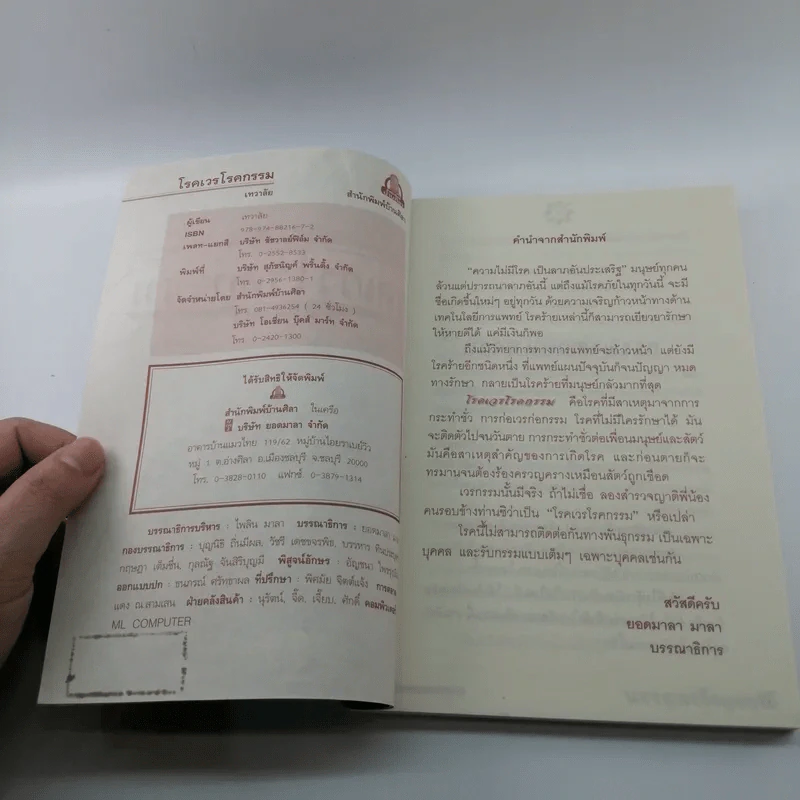 โรคเวรโรคกรรม
เทวาลัย
สำนักพิมพ์บ้านศิลา
ผู้เขียน เทวาลัย
ISBN 978-974-88216-7-2
เพลท-แยกสี บริษัท ธัชวาลย์ฟิล์ม จำกัด
โทร. 0-2552-8533
พิมพ์ที่ บริษัท สุภัชนิญค์ พริ้นติ้ง จำกัด
โทร. 0-2456-1380-1
จัดจำหน่ายโดย สำนักพิมพ์บ้านศิลา
โทร. 081-4936254 ( 24 ชั่วโมง )
บริษัท โอเชี่ยน บุ๊คส์ มาร์ท จำกัด
โทร. 0-2420-1300
ได้รับสิทธิให้จัดพิมพ์
สำนักพิมพ์บ้านศิลา ในเครือ
บริษัท ยอดมาลา จำกัด
อาคารบ้านแมวไทย 119/62 หมู่บ้านไอยราเบย์วิว
หมู่ : ต.อ่างศิลา อ.เมืองชลบุรี จ.ชลบุรี 20000
โทร. 0-3828-0110 แฟกซ์. 0-3879-1314
บรรณาธิการบริหาร : ไพลิน มาลา บรรณาธิการ : ยอดมาลา
กองบรรณาธิการ : บุญนิธิ ถิ่นมีผล, วัชรี เดชขจรพิช, บรรหาร
กฤษฎา เต็มชื่น, กุลณัฐ จันสิริบุญมี พิสูจน์อักษร : อัญชนา
ออกแบบปก : ธนภรณ์ ศรัทธาผล ที่ปรึกษา : พิศมัย จิตต์แจ้ง
แดง ณ.สามเสน ฝ่ายคลังสินค้า : นุรัจน์, จี๊ด, เจี๊ยบ, ศักดิ์ คอมพิวเตอร์
ML COMPUTER
คำนำจากสำนักพิมพ์
"ความไม่มีโรค เป็นลาภอันประเสริฐ" มนุษย์ทุกคน
ล้วนแต่ปรารถนาลาภอันนี้ แต่ถึงแม้โรคภัยในทุกวันนี้ จะมี
ชื่อเกิดขึ้นใหม่ๆ อยู่ทุกวัน ด้วยความเจริญก้าวหน้าทางด้าน
เทคโนโลยีการแพทย์ โรคร้ายเหล่านี้ก็สามารถเยียวยารักษา
ให้หายดีได้ แค่มีเงินก็พอ
ถึงแม้วิทยาการทางการแพทย์จะก้าวหน้า แต่ยังมี
โรคร้ายอีกชนิดหนึ่ง ที่แพทย์แผนปัจจุบันก็จนปัญญา หมด
ทางรักษา กลายเป็นโรคร้ายที่มนุษย์กลัวมากที่สุด
โรคเวรโรคกรรม คือโรคที่มีสาเหตุมาจากการ
กระทำชั่ว การก่อเวรก่อกรรม โรคที่ไม่มีใครรักษาได้ มัน
จะติดตัวไปจนวันตาย การกระทำชั่วต่อเพื่อนมนุษย์และสัตว์
มันคือสาเหตุสำคัญของการเกิดโรค และก่อนตายก็จะ
ทรมานจนต้องร้องครวญครางเหมือนสัตว์ถูกเชือด
เวรกรรมนั้นมีจริง ถ้าไม่เชื่อ ลองสำรวจญาติพี่น้อง
คนรอบข้างท่านซิว่าเป็น "โรคเวรโรคกรรม" หรือเปล่า
โรคนี้ไม่สามารถติดต่อกันทางพันธุกรรม เป็นเฉพาะ
บุคคล และรับกรรมแบบเต็มๆ เฉพาะบุคคลเช่นกัน
สวัสดีครับ
ยอดมาลา มาลา
บรรณาธิการ